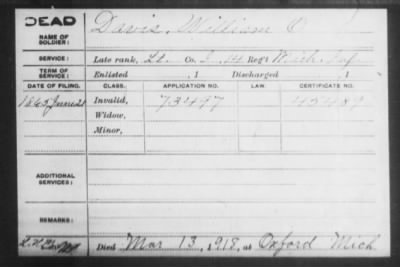 DEAD
NAME OF SOLDIER: Davis, William O
SERVICE: Late rank, Lt. Co. I, 14 Reg't Mich. Inf
TERM OF SERVICE: Enlisted , 1 Discharged , 1
DATE OF FILING. CLASS. APPLICATION NO. LAW. CERTIFICATE NO.
1865 June 21 Invalid, 73497
Widow,
Minor,
ADDITIONAL SERVICES:
REMARKS:
Died Mar 13, 1918, at Oxford Mich